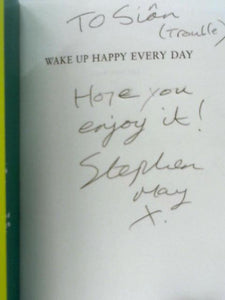 To Siân
(Trouble)
WAKE UP HAPPY EVERY DAY
Hope you
enjoy it!
Stephen
May
X.